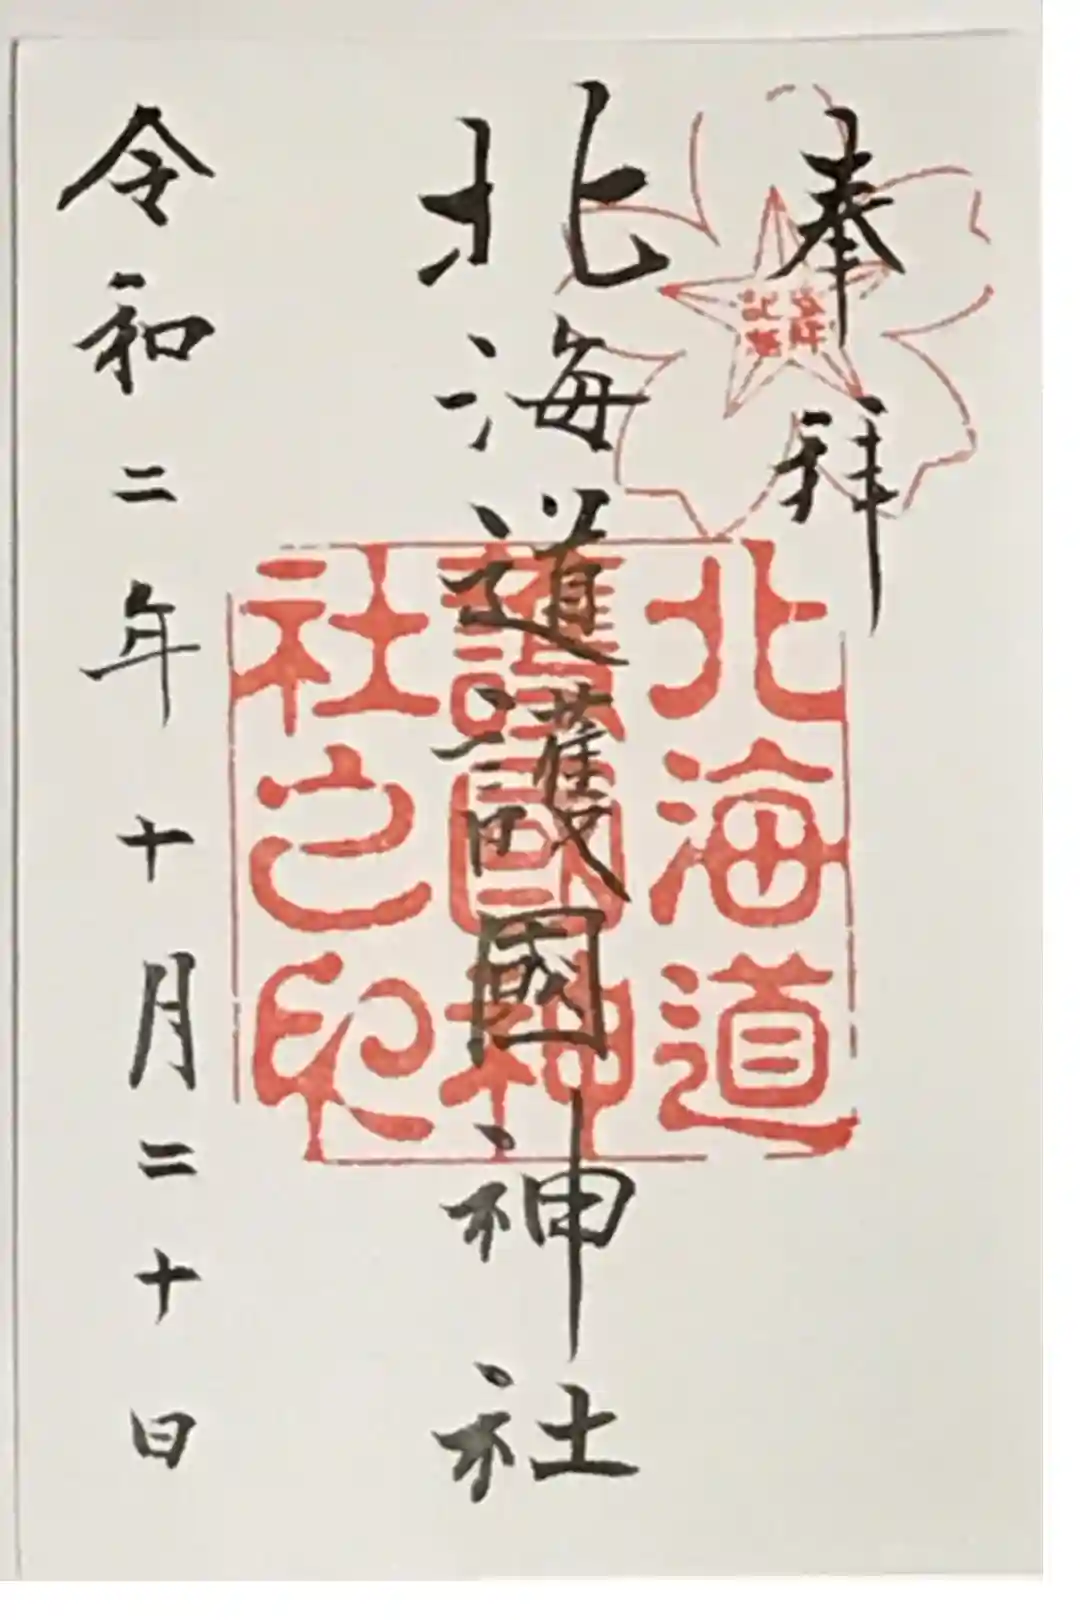 奉拝
北海道護國神社
令和二年十月二十日
北海道
護國神
社之印